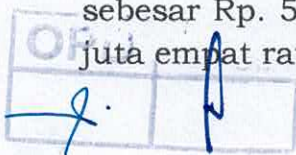 sebesar Rp. 5
juta empat ra